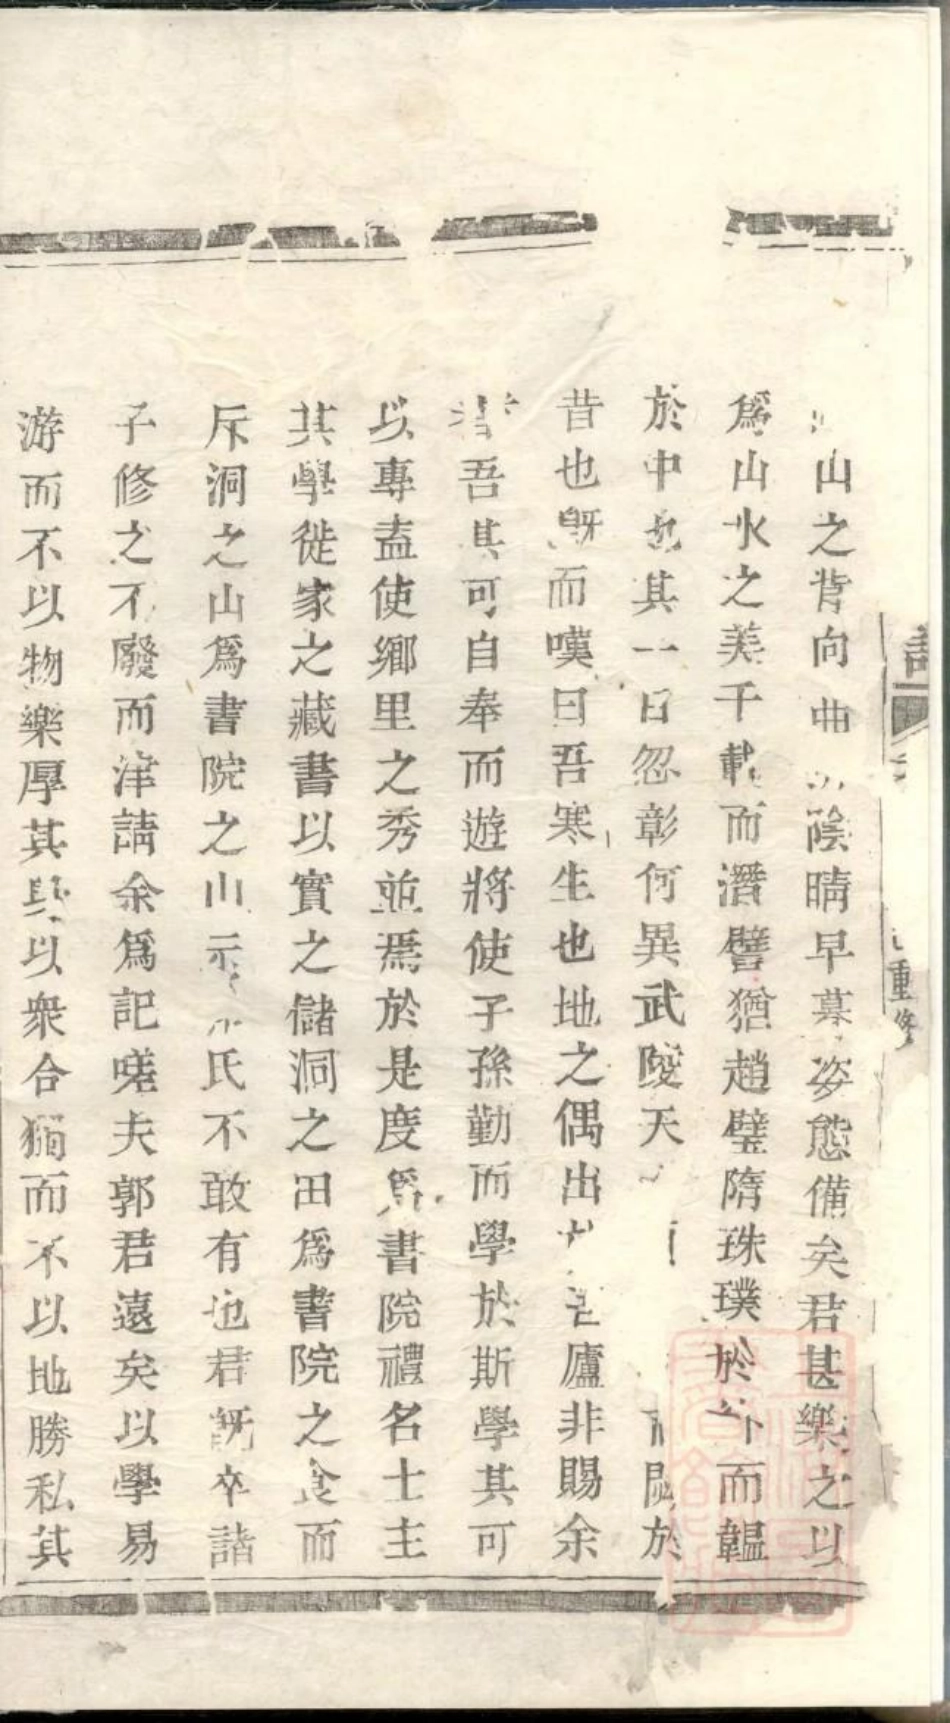 山之背向曲陰晴早暮姿態備矣君甚樂之以
爲山水之美千載而潛譬猶趙璧隋珠璞於外而韞
於中也其一日忽彰何異武陵天於
昔也旣而嘆曰吾寒生也地之偶出廬非賜余
吾其可自奉而遊將使子孫勤而學於斯學其可
以專盍使鄉里之秀並焉於是度爲書院禮名士主
其學徙家之藏書以實之儲洞之田爲書院之食而
斥洞之山爲書院之山示氏不敢有也君旣卒諸
子修之不廢而津請余爲記嗟夫郭君遠矣以學易
游而不以物樂厚其與以衆合獨而不以地勝私其
重修